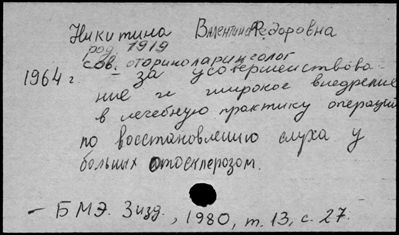 Никитина Валентина Федоровна
род. 1919
сов. оториноларинголог
1964 г. – за усовершенствова-
ние и широкое внедрение
в лечебную практику операций
по восстановлению слуха у
больных отосклерозом.
– БМЭ. 3 изд., 1980, т. 13, с. 27.